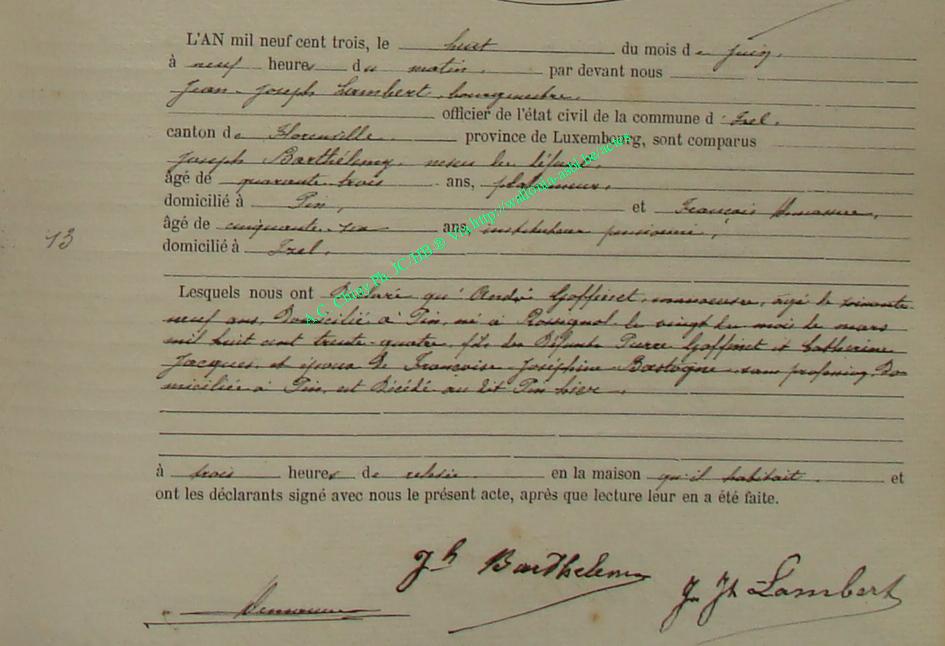 L'AN mil neuf cent trois, le huit du mois de juin,
à neuf heures du matin, par devant nous
Jean-Joseph Lambert, bourgmestre,
officier de l'état civil de la commune d'Izel,
canton de Florenville province de Luxembourg, sont comparus
Joseph Barthélemy, neveu du défunt,
âgé de quarante-trois ans,
domicilié à Pin, et François
âgé de cinquante-six ans, instituteur pensionné,
domicilié à Izel,
13
Lesquels nous ont déclaré qu'André Goffinet, manoeuvre, âgé de soixante
neuf ans, domicilié à Pin, né à Rossignol le vingt du mois de mars
mil huit cent trente-quatre, fils des défunts Pierre Goffinet et Catherine
Jacques, et époux de Françoise Joséphine Bastogne, sans profession, do
miciliée à Pin, est décédé au dit Pin hier,
à trois heures de relevée en la maison qu'il habitait, et
ont les déclarants signé avec nous le présent acte, après que lecture leur en a été faite.
Jh Barthelemy
Jn Jh Lambert
A.C. Chiny Ph. JC/HB ® Via http://wallonia-asbl.be/actes